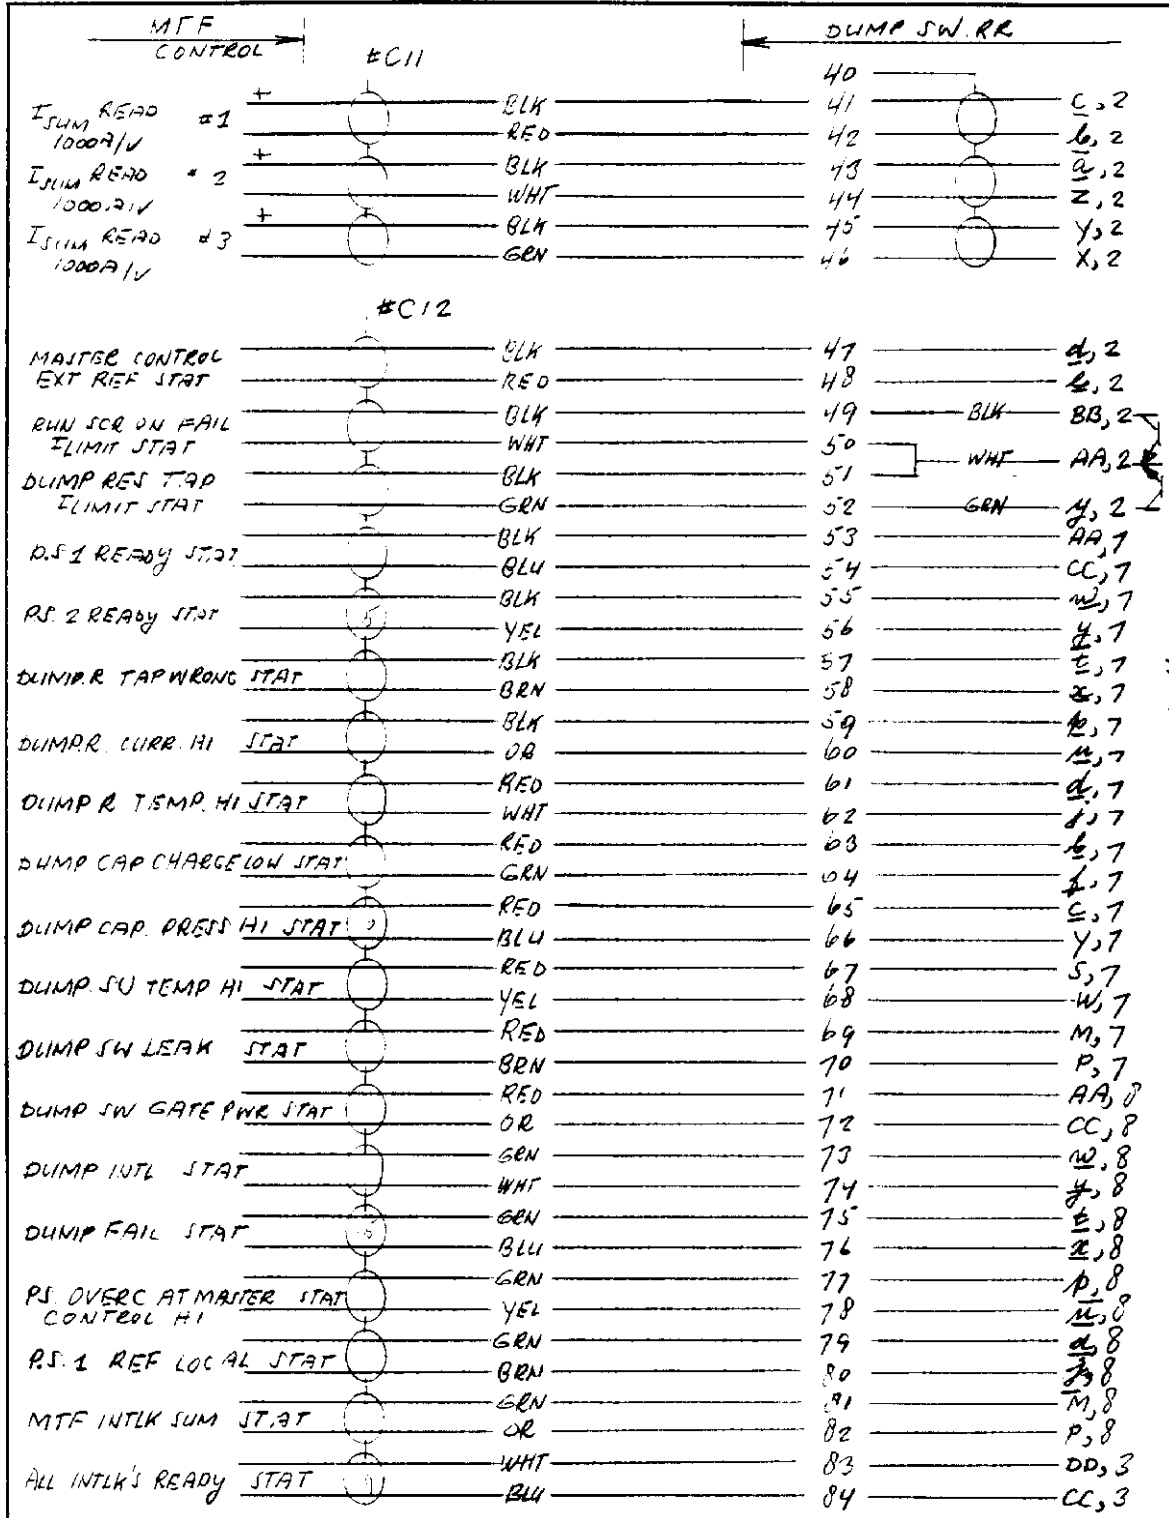 MTF
CONTROL
DUMP SW. RR
#C11
40
ISUM READ #1
1000A/V
+ BLK 41 c, 2
RED 42 b, 2
ISUM READ #2
1000A/V
+ BLK 43 a, 2
WHT 44 Z, 2
ISUM READ #3
1000A/V
+ BLK 45 Y, 2
GRN 46 X, 2
#C12
MASTER CONTROL
EXT REF STAT
BLK 47 d, 2
RED 48 2
RUN SCR ON FAIL
ILIMIT STAT
BLK 49 BLK BB, 2
WHT 50
WHT AA, 2
DUMP RES TAP
ILIMIT STAT
BLK 51
GRN 52 GRN y, 2
P.S 1 READY STAT
BLK 53 AA, 7
BLU 54 CC, 7
P.S. 2 READY STAT
BLK 55 w, 7
YEL 56 y, 7
DUMP.R TAP WRONG STAT
BLK 57 t, 7
BRN 58 x, 7
DUMP.R. CURR. HI STAT
BLK 59 p, 7
OR 60 u, 7
DUMP R TEMP. HI STAT
RED 61 d, 7
WHT 62 j, 7
DUMP CAP CHARGE LOW STAT
RED 63 b, 7
GRN 64 f, 7
DUMP CAP. PRESS HI STAT
RED 65 c, 7
BLU 66 Y, 7
DUMP SW TEMP HI STAT
RED 67 S, 7
YEL 68 W, 7
DUMP SW LEAK STAT
RED 69 M, 7
BRN 70 P, 7
DUMP SW GATE PWR STAT
RED 71 AA, 8
OR 72 CC, 8
DUMP INTL STAT
GRN 73 w, 8
WHT 74 y, 8
DUMP FAIL STAT
GRN 75 t, 8
BLU 76 x, 8
P.S. OVERC AT MASTER STAT
CONTROL HI
GRN 77 p, 8
YEL 78 u, 8
P.S. 1 REF LOCAL STAT
GRN 79 d, 8
BRN 80 j, 8
MTF INTLK SUM STAT
GRN 81 M, 8
OR 82 P, 8
ALL INTLK'S READY STAT
WHT 83 DD, 3
BLU 84 CC, 3